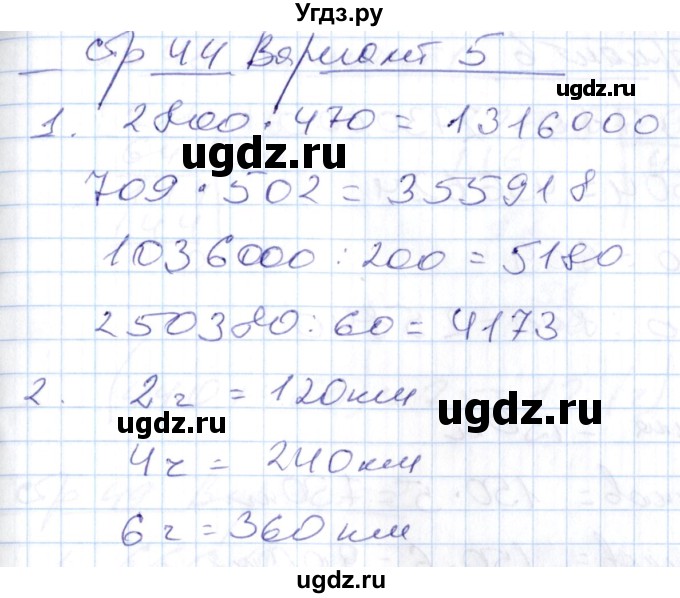 Угдз.ру
стр 44 Вариант 5
ugdz.ru
1. 2800 · 470 = 1316000
ugdz.ru
709 · 502 = 355918
1036000 : 200 = 5180
250380 : 60 = 4173
2. 2 ч = 120 км
ugdz.ru
ugdz.ru
4 ч = 240 км
6 ч = 360 км
ugdz.ru